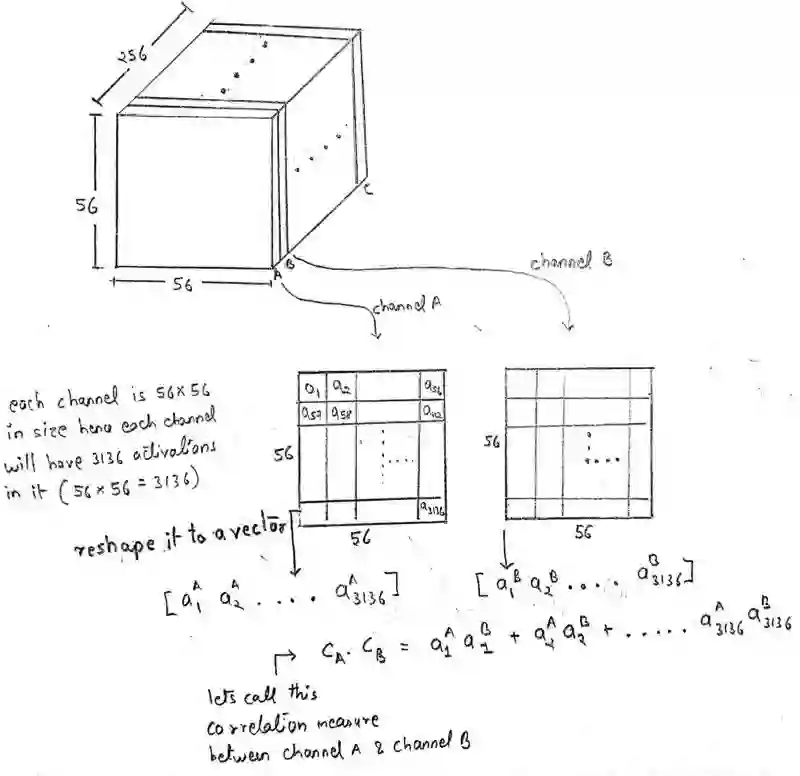 256
56
56
A
B
C
channel B
channel A
each channel is 56×56
in size hence each channel
will have 3136 activations
in it (56×56 = 3136)
a₁ a₂ a₅₆
a₅₇ a₅₈ a₁₁₂
a₃₁₃₆
56
56
56
56
reshape it to a vector
[a₁ᴬ a₂ᴬ . . . . a₃₁₃₆ᴬ]
[a₁ᴮ a₂ᴮ . . . . a₃₁₃₆ᴮ]
C_A . C_B = a₁ᴬ a₁ᴮ + a₂ᴬ a₂ᴮ + . . . . . a₃₁₃₆ᴬ a₃₁₃₆ᴮ
lets call this
correlation measure
between channel A & channel B